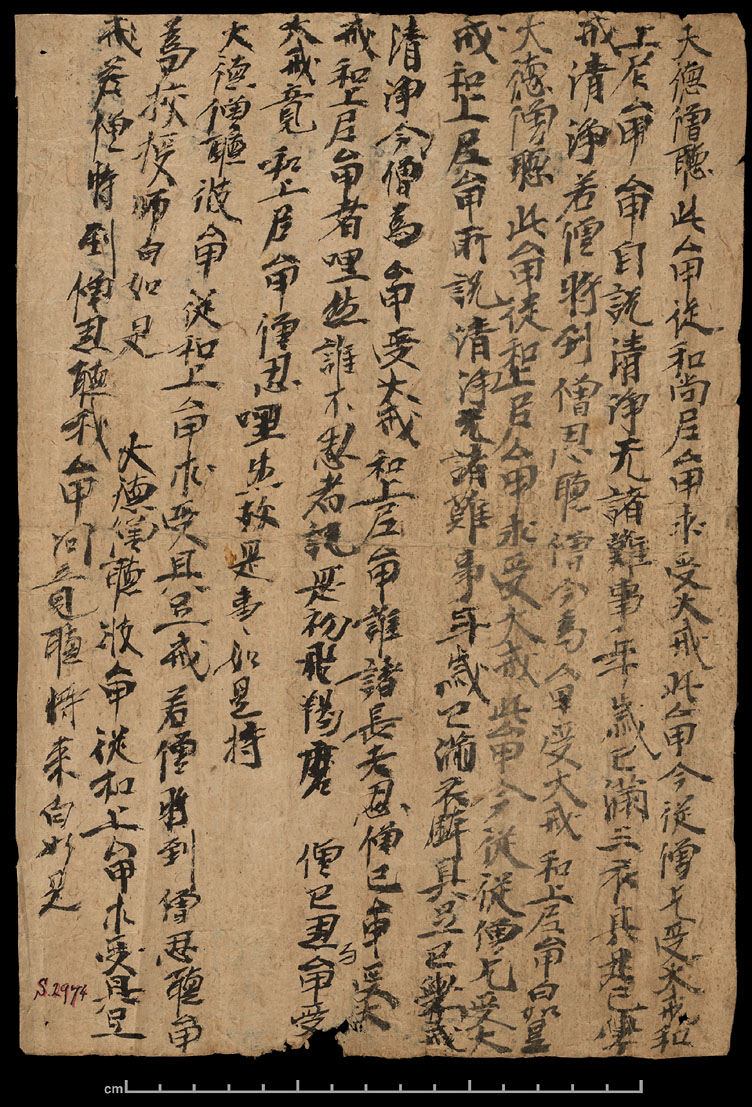 大德僧聽此厶甲從和尚尼厶甲求受大戒此厶甲今從僧乞受大戒和
上尼厶甲厶甲自說清淨无諸難事年歲已滿三衣具足已學
戒清淨若僧時到僧忍聽僧今為厶甲受大戒和上尼厶甲白如是
大德僧聽此厶甲從和上尼厶甲求受大戒此厶甲今從從僧乞受大
戒和上尼厶甲所說清淨无諸難事年歲已滿衣鉢具足已學戒
清淨今僧為厶甲受大戒和上尼厶甲誰諸長老忍僧已厶甲受大
戒和上尼厶甲者嘿然誰不忍者說是初羯磨 僧已忍為厶甲受
大戒竟和上尼厶甲僧忍嘿然故是事如是持
大德僧聽彼厶甲從和上厶甲求受具足戒若僧時到僧忍聽厶甲
為教授師白如是 大德僧聽彼厶甲從和上厶甲求受具足
戒若僧時到僧忍聽我厶甲問竟聽將來白如是
S.2974
cm